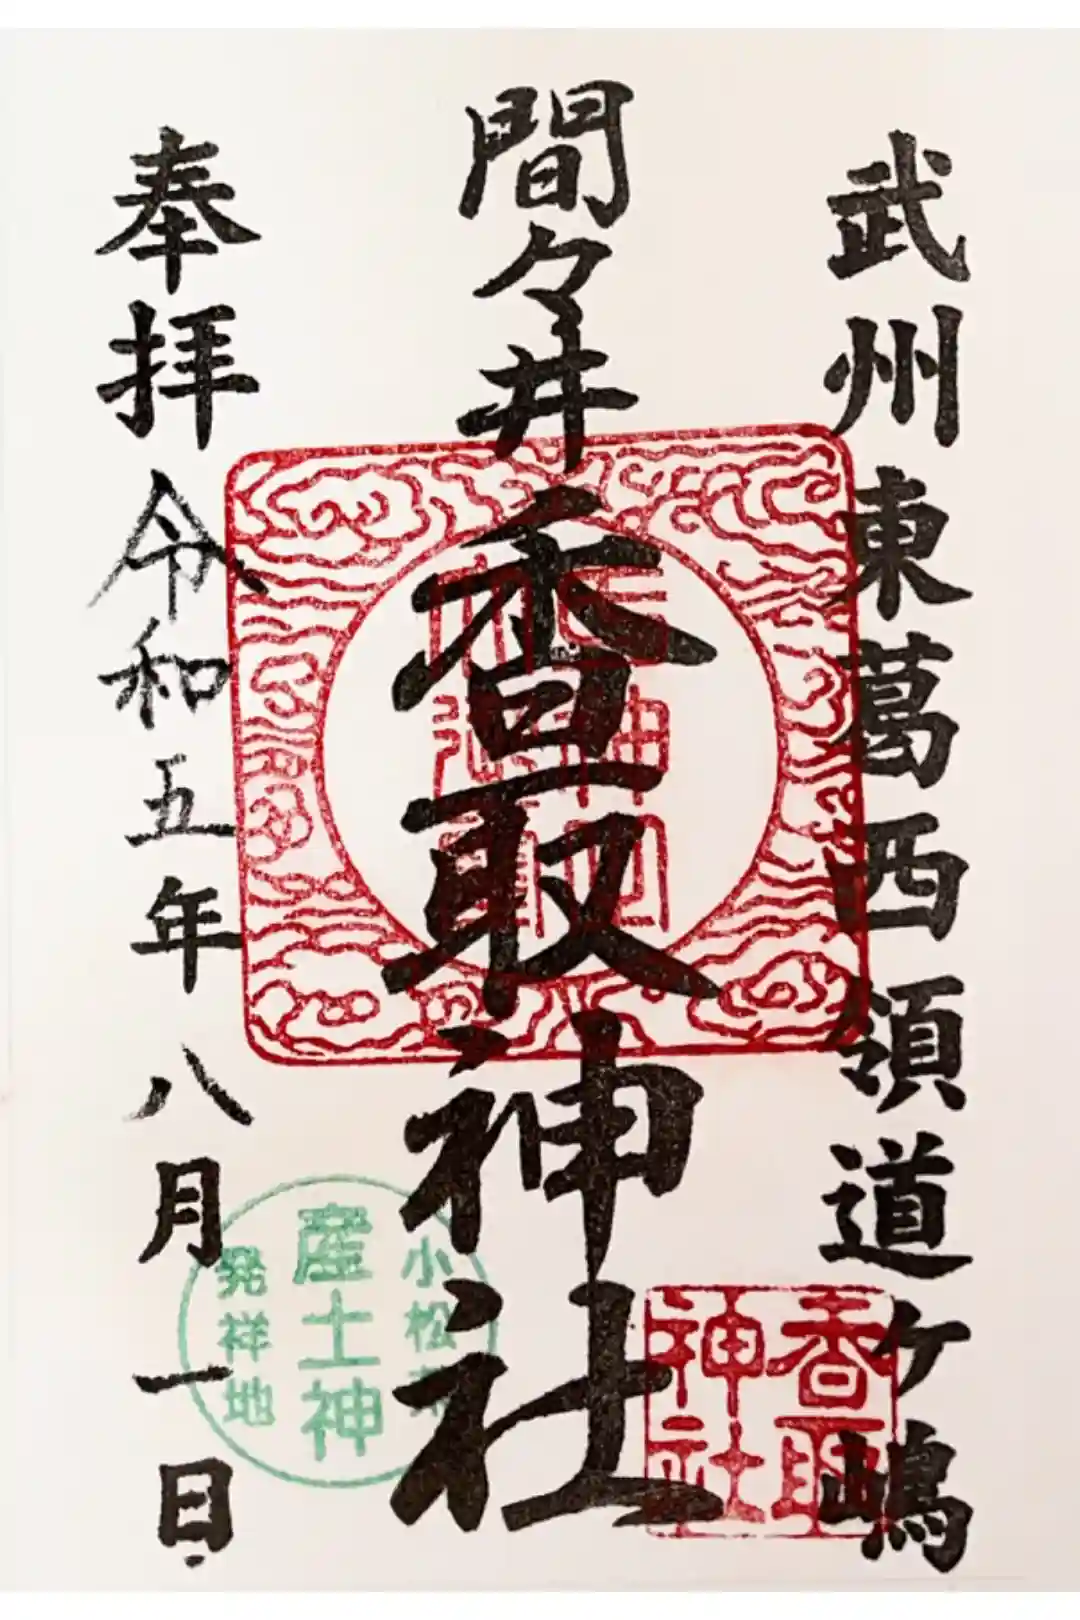 武州東葛西領道ケ嶋
間々井香取神社
奉拝令和五年八月一日
香取
神社
産土神
発祥地